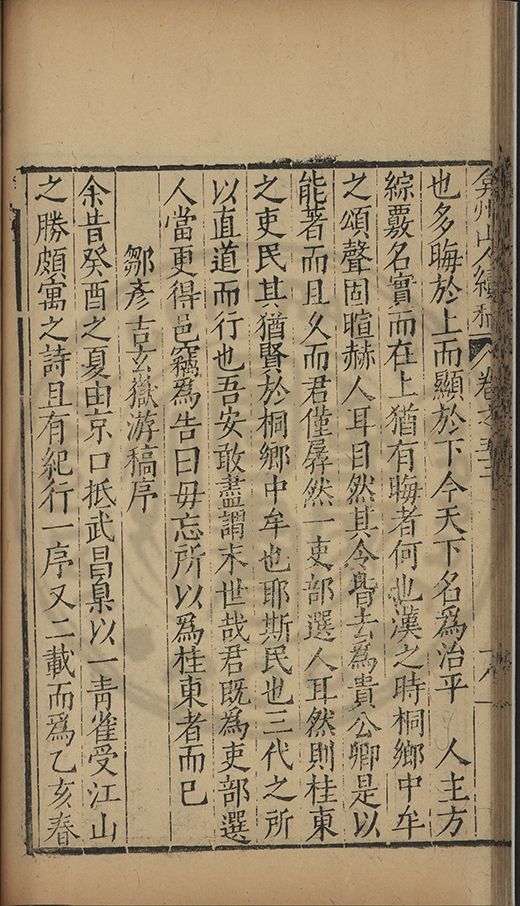 弇州山人續稿 卷之五十
也多晦於上而顯於下今天下名爲治平 人主方
綜覈名實而在上猶有晦者何也漢之時桐鄉中牟
之頌聲固暄赫人耳目然其令皆去爲貴公卿是以
能著而且久而君僅孱然一吏部選人耳然則桂東
之吏民其猶賢於桐鄉中牟也耶斯民也三代之所
以直道而行也吾安敢盡謂末世哉君既爲吏部選
人當更得邑竊爲告曰毋忘所以爲桂東者而已
鄒彥吉玄嶽游稿序
余昔癸酉之夏由京口抵武昌臬以一靑雀受江山
之勝頗寓之詩且有紀行一序又二載而爲乙亥春